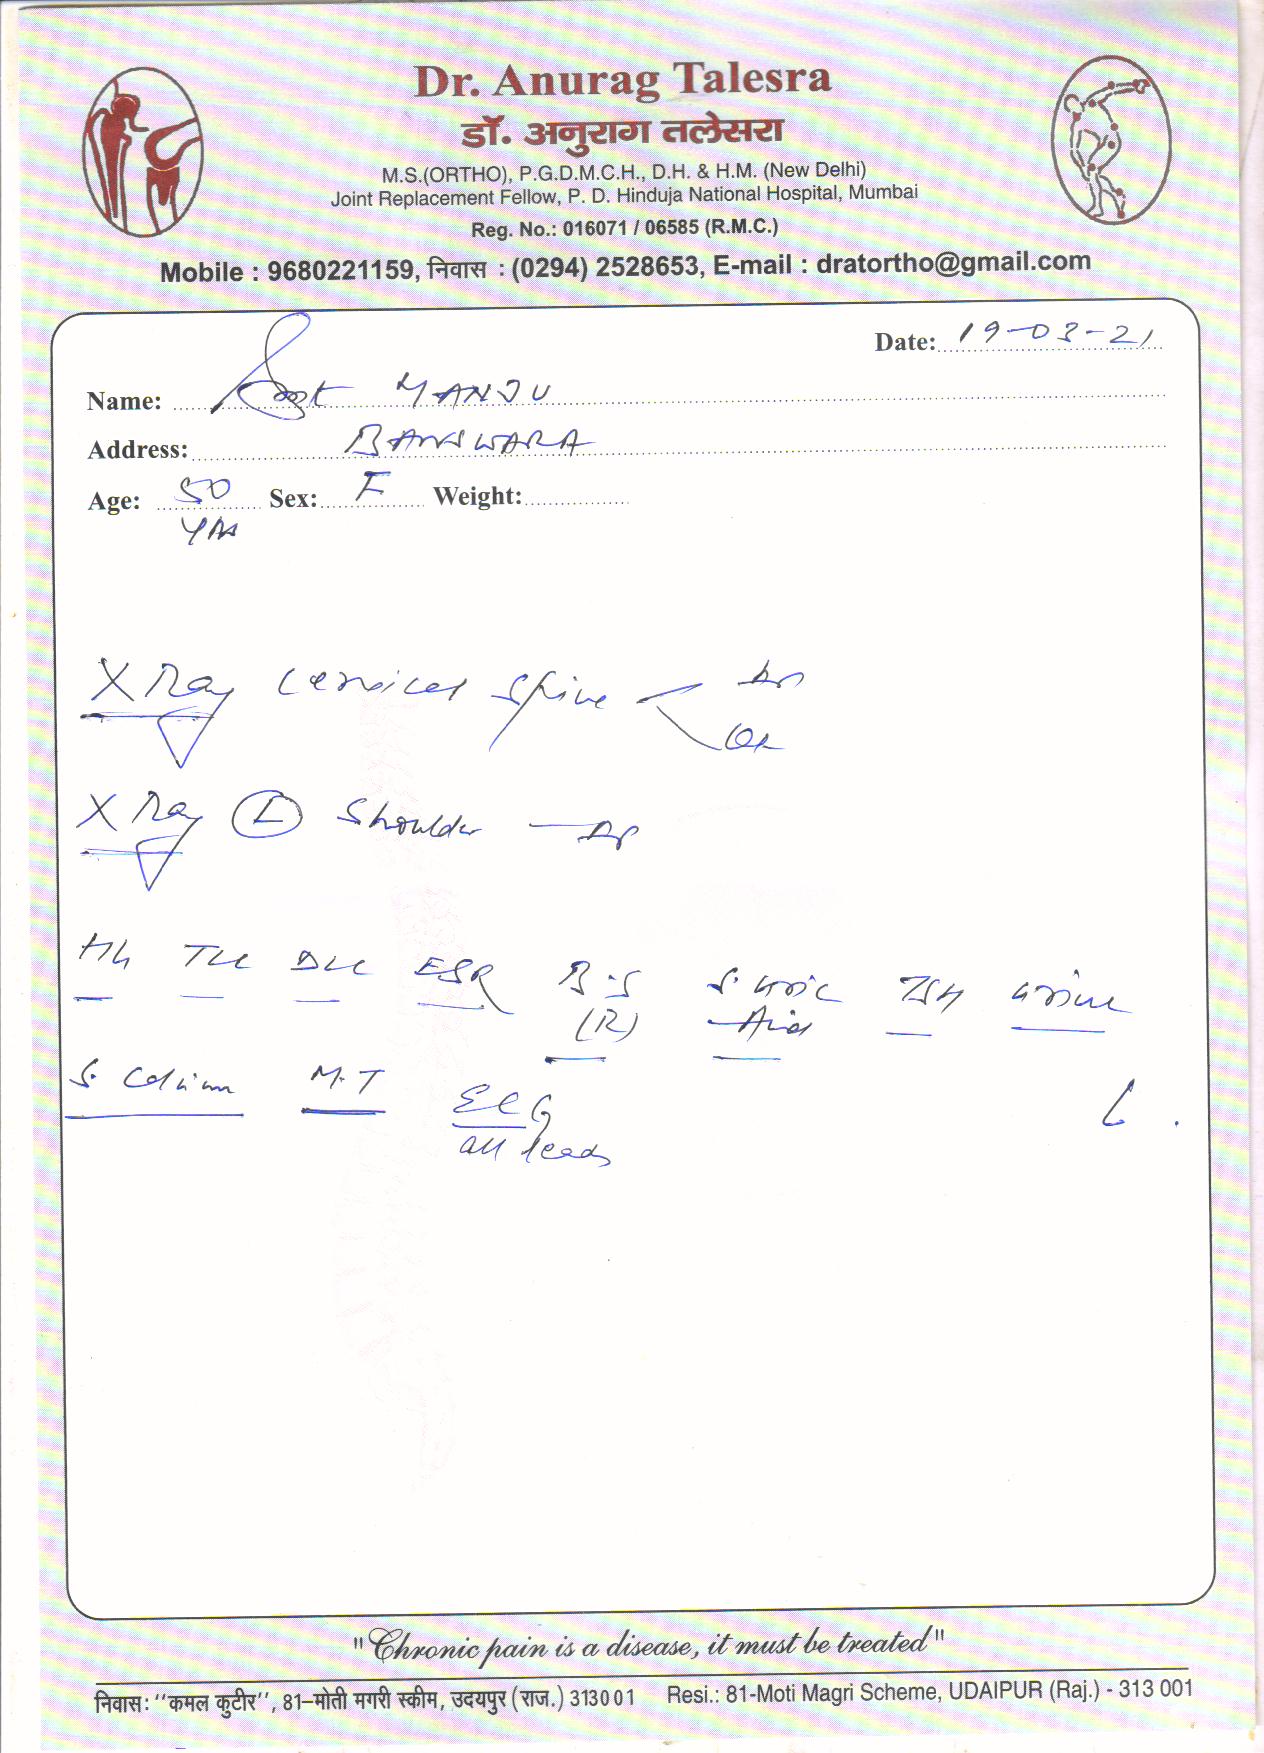 Dr. Anurag Talesra
डॉ. अनुराग तलेसरा
M.S.(ORTHO), P.G.D.M.C.H., D.H. & H.M. (New Delhi)
Joint Replacement Fellow, P. D. Hinduja National Hospital, Mumbai
Reg. No.: 016071 / 06585 (R.M.C.)
Mobile : 9680221159, निवास : (0294) 2528653, E-mail : dratortho@gmail.com
Date: 19-03-21
Name: MANJU
Address: BANSWARA
Age: 50 Sex: F Weight:
Yrs
X Ray Cervical Spine AP
X Ray L Shoulder AP
Hb TLC DLC ESR B.S S. Uric TSH Urine
(R) Acid
S. Calcium M.T ECG
all leads
"Chronic pain is a disease, it must be treated"
निवास: "कमल कुटीर", 81-मोती मगरी स्कीम, उदयपुर (राज.) 313001 Resi.: 81-Moti Magri Scheme, UDAIPUR (Raj.) - 313 001